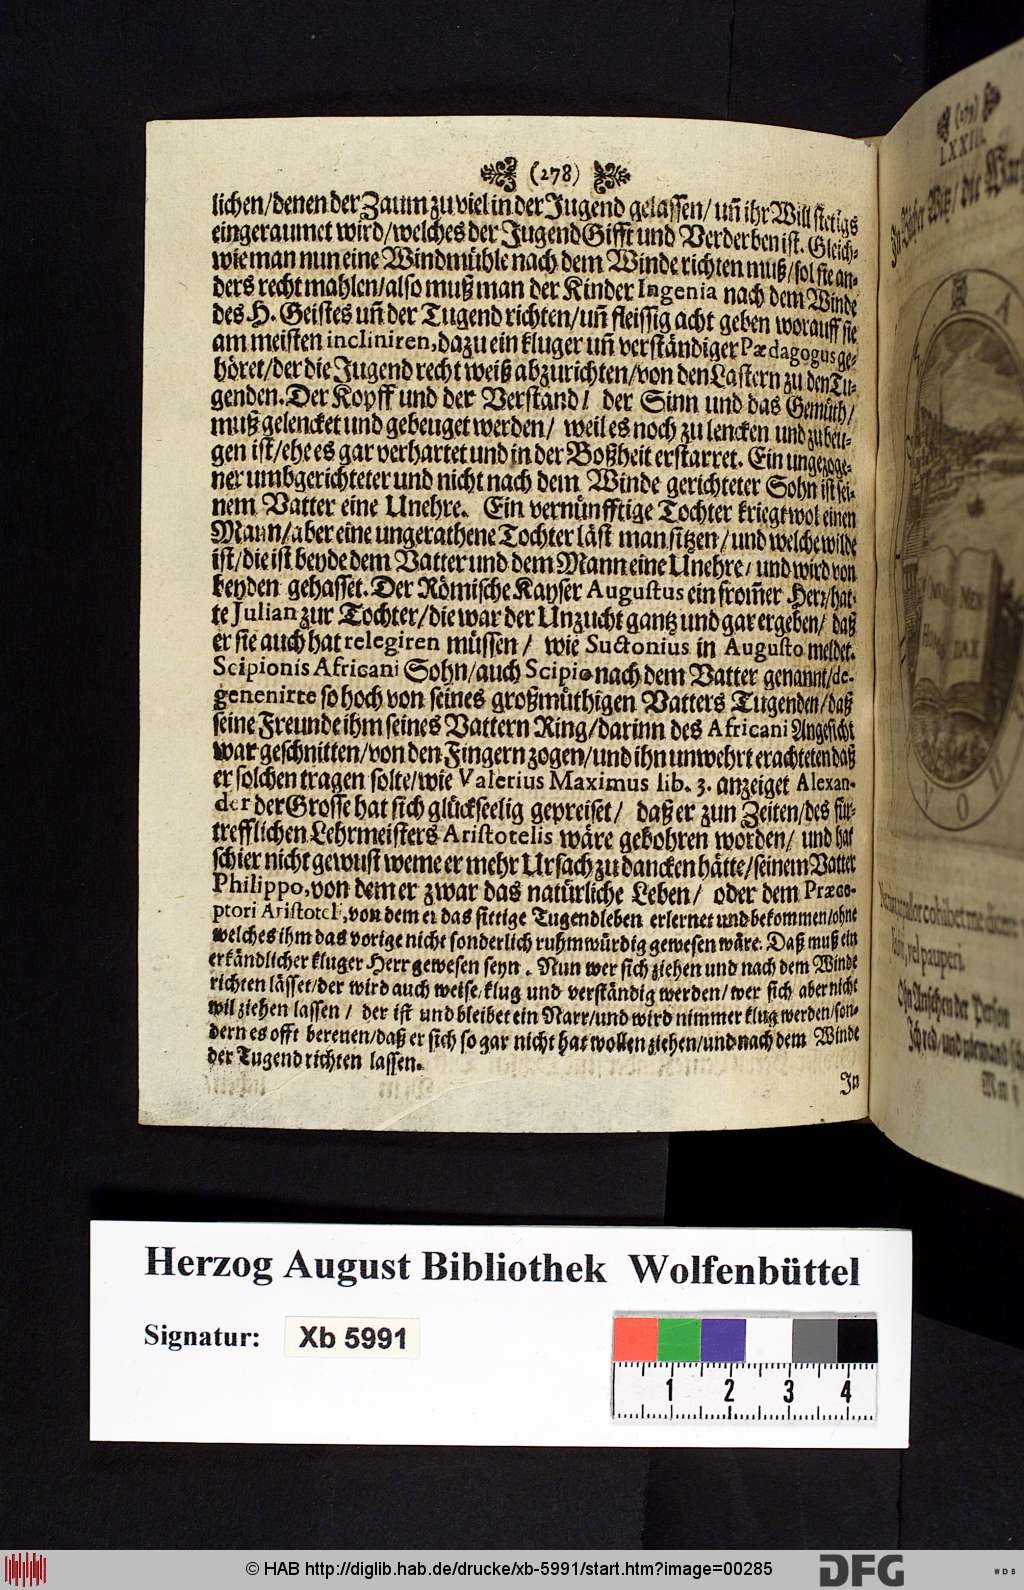 (278)
lichen/denen der Zaum zu viel in der Jugend gelassen/ uñ ihr Will stetigs
eingeraumet wird/welches der Jugend Gifft und Verderben ist. Gleich-
wie man nun eine Windmühle nach dem Winde richten muß/sol sie an-
ders recht mahlen/also muß man der Kinder Ingenia nach dem Winde
des H. Geistes uñ der Tugend richten/uñ fleissig acht geben worauff sie
am meisten incliniren, dazu ein kluger uñ verständiger Pædagogus ge-
höret/der die Jugend recht weiß abzurichten/von den Lastern zu den Tu-
genden. Der Kopff und der Verstand/ der Sinn und das Gemüth/
muß gelencket und gebeuget werden/ weil es noch zu lencken und zu beu-
gen ist/ehe es gar verhartet und in der Boßheit erstarret. Ein ungezoge-
ner umbgerichteter und nicht nach dem Winde gerichteter Sohn ist sei-
nem Vatter eine Unehre. Ein vernünfftige Tochter kriegt wol einen
Mann/aber eine ungerathene Tochter läst man sitzen/und welche wilde
ist/die ist beyde dem Vatter und dem Mann eine Unehre/ und wird von
beyden gehasset. Der Römische Kayser Augustus ein from̃er Herr/hat-
te Julian zur Tochter/die war der Unzucht gantz und gar ergeben/ daß
er sie auch hat relegiren müssen/ wie Suetonius in Augusto meldet.
Scipionis Africani Sohn/auch Scipio nach dem Vatter genannt/de-
genenirte so hoch von seines großmüthigen Vatters Tugenden/daß
seine Freunde ihm seines Vattern Ring/darinn des Africani Angesicht
war geschnitten/von den Fingern zogen/und ihn unwehrt erachteten daß
er solchen tragen solte/wie Valerius Maximus lib. 3. anzeiget Alexan-
der der Grosse hat sich glückseelig gepreiset/ daß er zun Zeiten/des für-
trefflichen Lehrmeisters Aristotelis wäre gebohren worden/ und hat
schier nicht gewust weme er mehr Ursach zu dancken hätte/seinem Vatter
Philippo, von dem er zwar das natürliche Leben/ oder dem Præce-
ptori Aristoteli, von dem er das sittige Tugendleben erlernet und bekommen/ohne
welches ihm das vorige nicht sonderlich ruhmwürdig gewesen wäre. Daß muß ein
erkändlicher kluger Herr gewesen seyn. Nun wer sich ziehen und nach dem Winde
richten lässet/der wird auch weise/klug und verständig werden/wer sich aber nicht
wil ziehen lassen/ der ist und bleibet ein Narr/und wird nimmer klug werden/son-
dern es offt bereuen/daß er sich so gar nicht hat wollen ziehen/und nach dem Winde
der Tugend richten lassen.
In
(279)
LXXIII.
In dieser Witz/ die
cohibet me
vel pauperi.
Ohn Ansehen der Person
und niemand
Herzog August Bibliothek Wolfenbüttel
Signatur: Xb 5991
1 2 3 4
© HAB http://diglib.hab.de/drucke/xb-5991/start.htm?image=00285
DFG
WDB